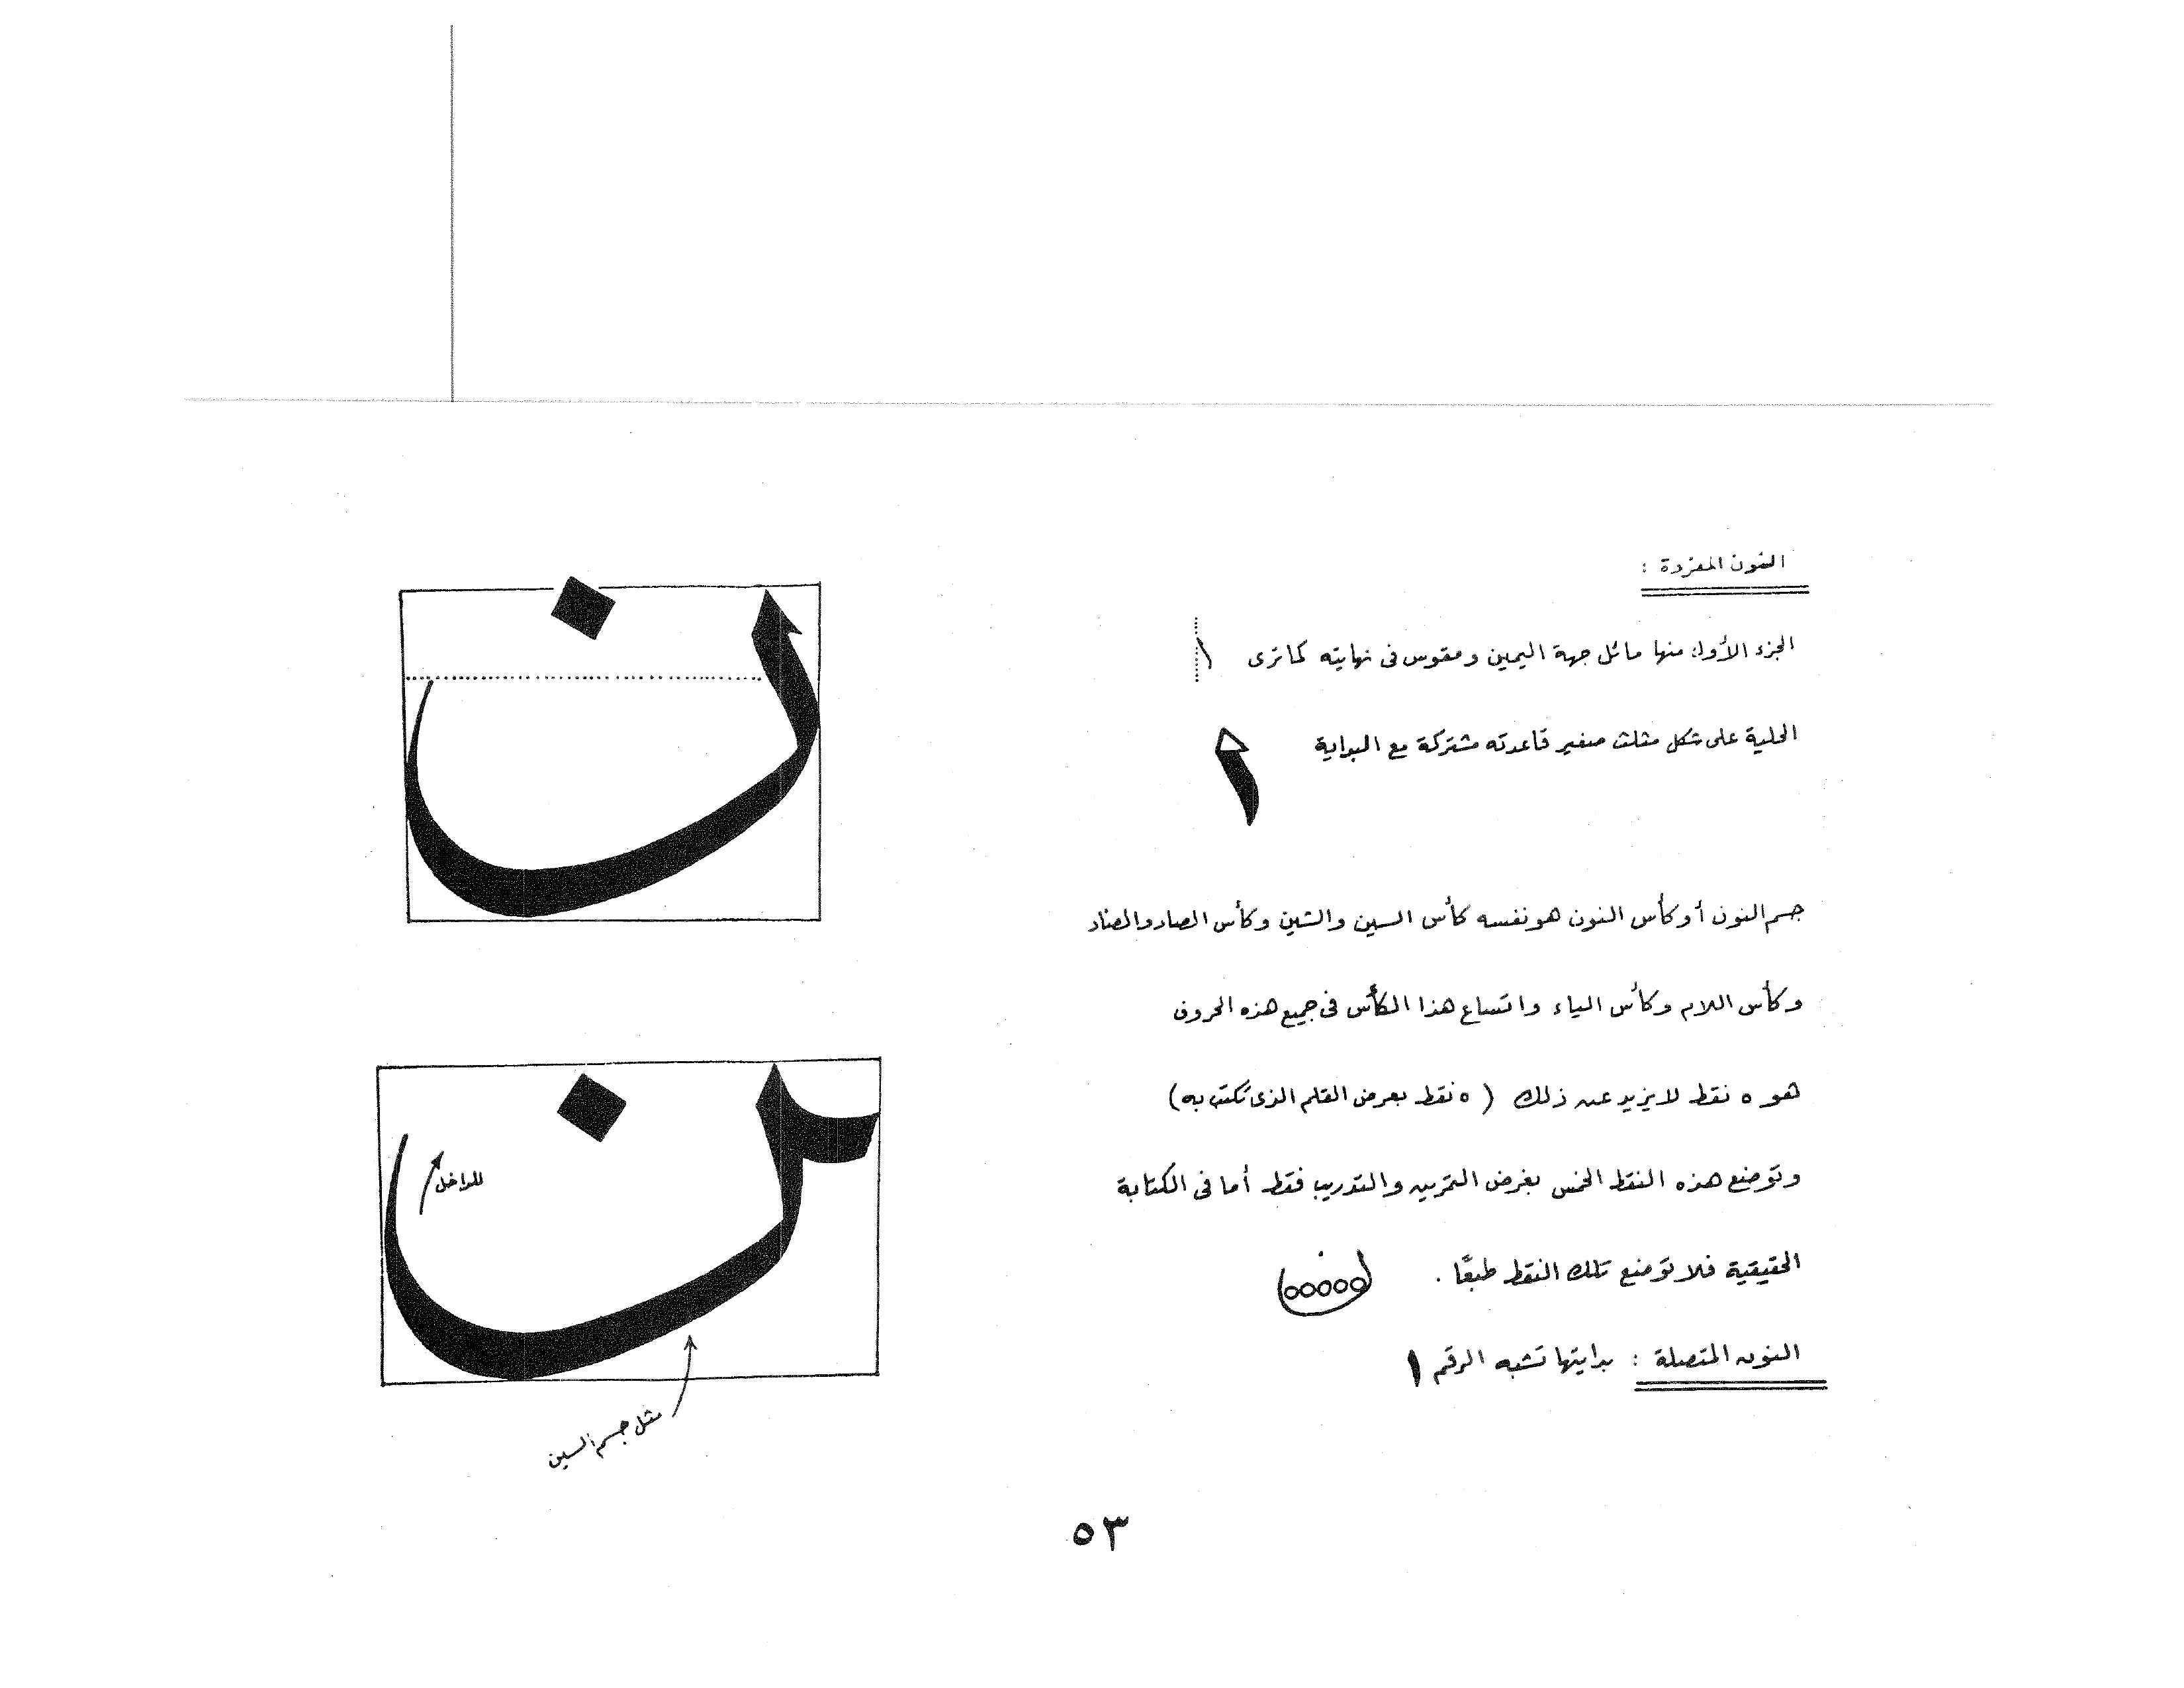 النون المفردة :
الجزء الأول منها مائل جهة اليمين ومقوس فى نهايته كما ترى
الحلية على شكل مثلث صغير قاعدته مشتركة مع البداية
جسم النون أو كأس النون هو نفسه كأس السين والشين وكأس الصاد والضاد
وكأس اللام وكأس الياء واتساع هذا الكأس فى جميع هذه الحروف
هو ٥ نقط لا يزيد عن ذلك (٥ نقط بعرض القلم الذى تكتب به)
وتوضع هذه النقط الخمس بغرض التمرين والتدريب فقط أما فى الكتابة
الحقيقية فلا توضع تلك النقط طبعًا .
النون المتصلة : بدايتها تشبه الرقم ١
ن
ن
للداخل
مثل جسم السين
٥٣